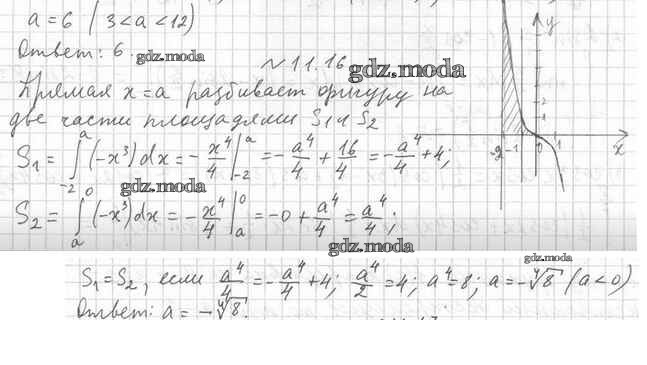 a = 6 (3 < a < 12)
Ответ: 6.
gdz.moda
№ 11.16
gdz.moda
Прямая x = a разбивает фигуру на
две части площадями S₁ и S₂
S₁ = ∫₋₂ᵃ (-x³) dx = - x⁴/4 |₋₂ᵃ = - a⁴/4 + 16/4 = - a⁴/4 + 4;
gdz.moda
S₂ = ∫ₐ⁰ (-x³) dx = - x⁴/4 |ₐ⁰ = -0 + a⁴/4 = a⁴/4;
gdz.moda
y
-2 -1 0 1 x
gdz.moda
S₁ = S₂, если a⁴/4 = - a⁴/4 + 4; a⁴/2 = 4; a⁴ = 8; a = -⁴√8 (a < 0)
Ответ: a = -⁴√8.